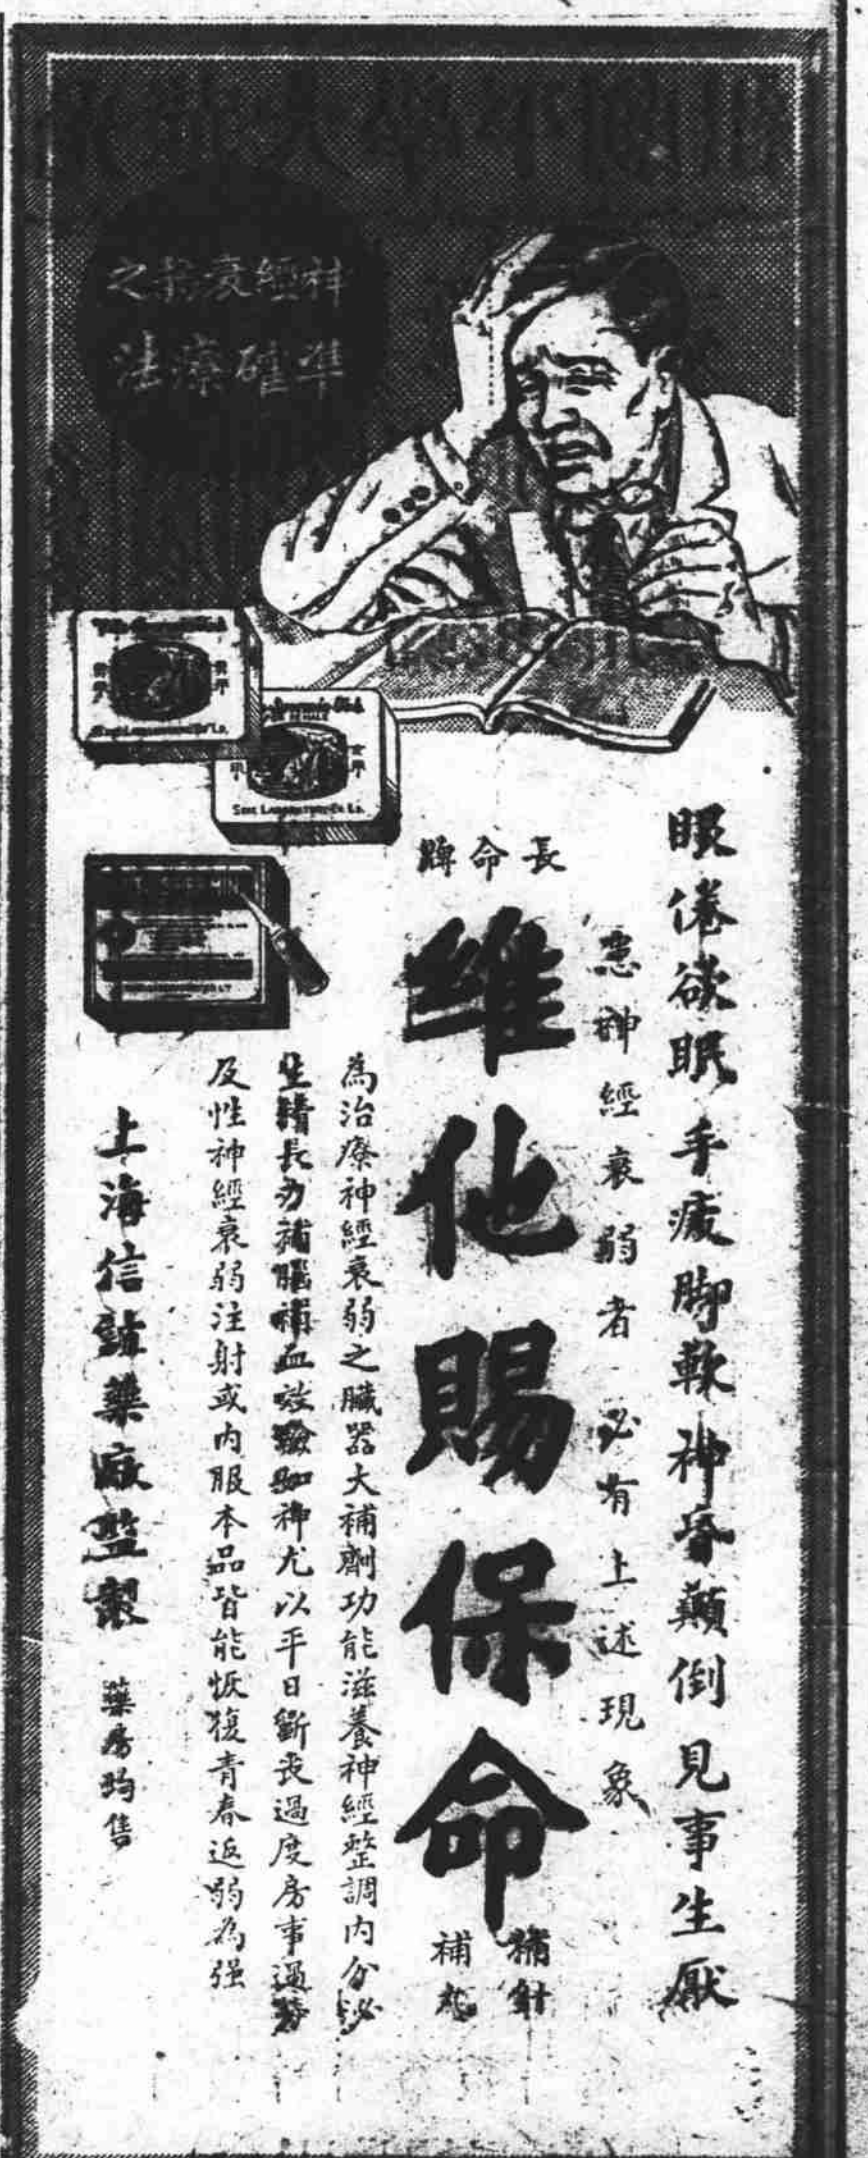 神經衰弱之
準確療法
眼倦欲眠手痠脚軟神昏顛倒見事生厭
患神經衰弱者必有上述現象
長命牌
維他賜保命
補射
補丸
為治療神經衰弱之臟器大補劑功能滋養神經整調內分泌
生精長力補腦補血效驗如神尤以平日斲丧過度房事過勞
及性神經衰弱注射或內服本品皆能恢復青春返弱為强
上海信誼藥廠監製
藥房均售